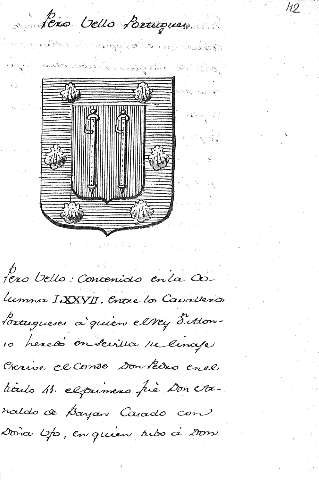 42
Pero Vello Portugues
Pero Vello: Contenido en la Co-
lumna LXXVII. entre los Cavalleros
Portugueses á quien el Rey Dn. Alon-
so heredó en Sevilla su linaje
escrive el Conde Don Pedro en el
titulo 41. el primero fue Don Ar-
naldo de Bayan Casado con
Doña Ufo, en quien tubo á Dom